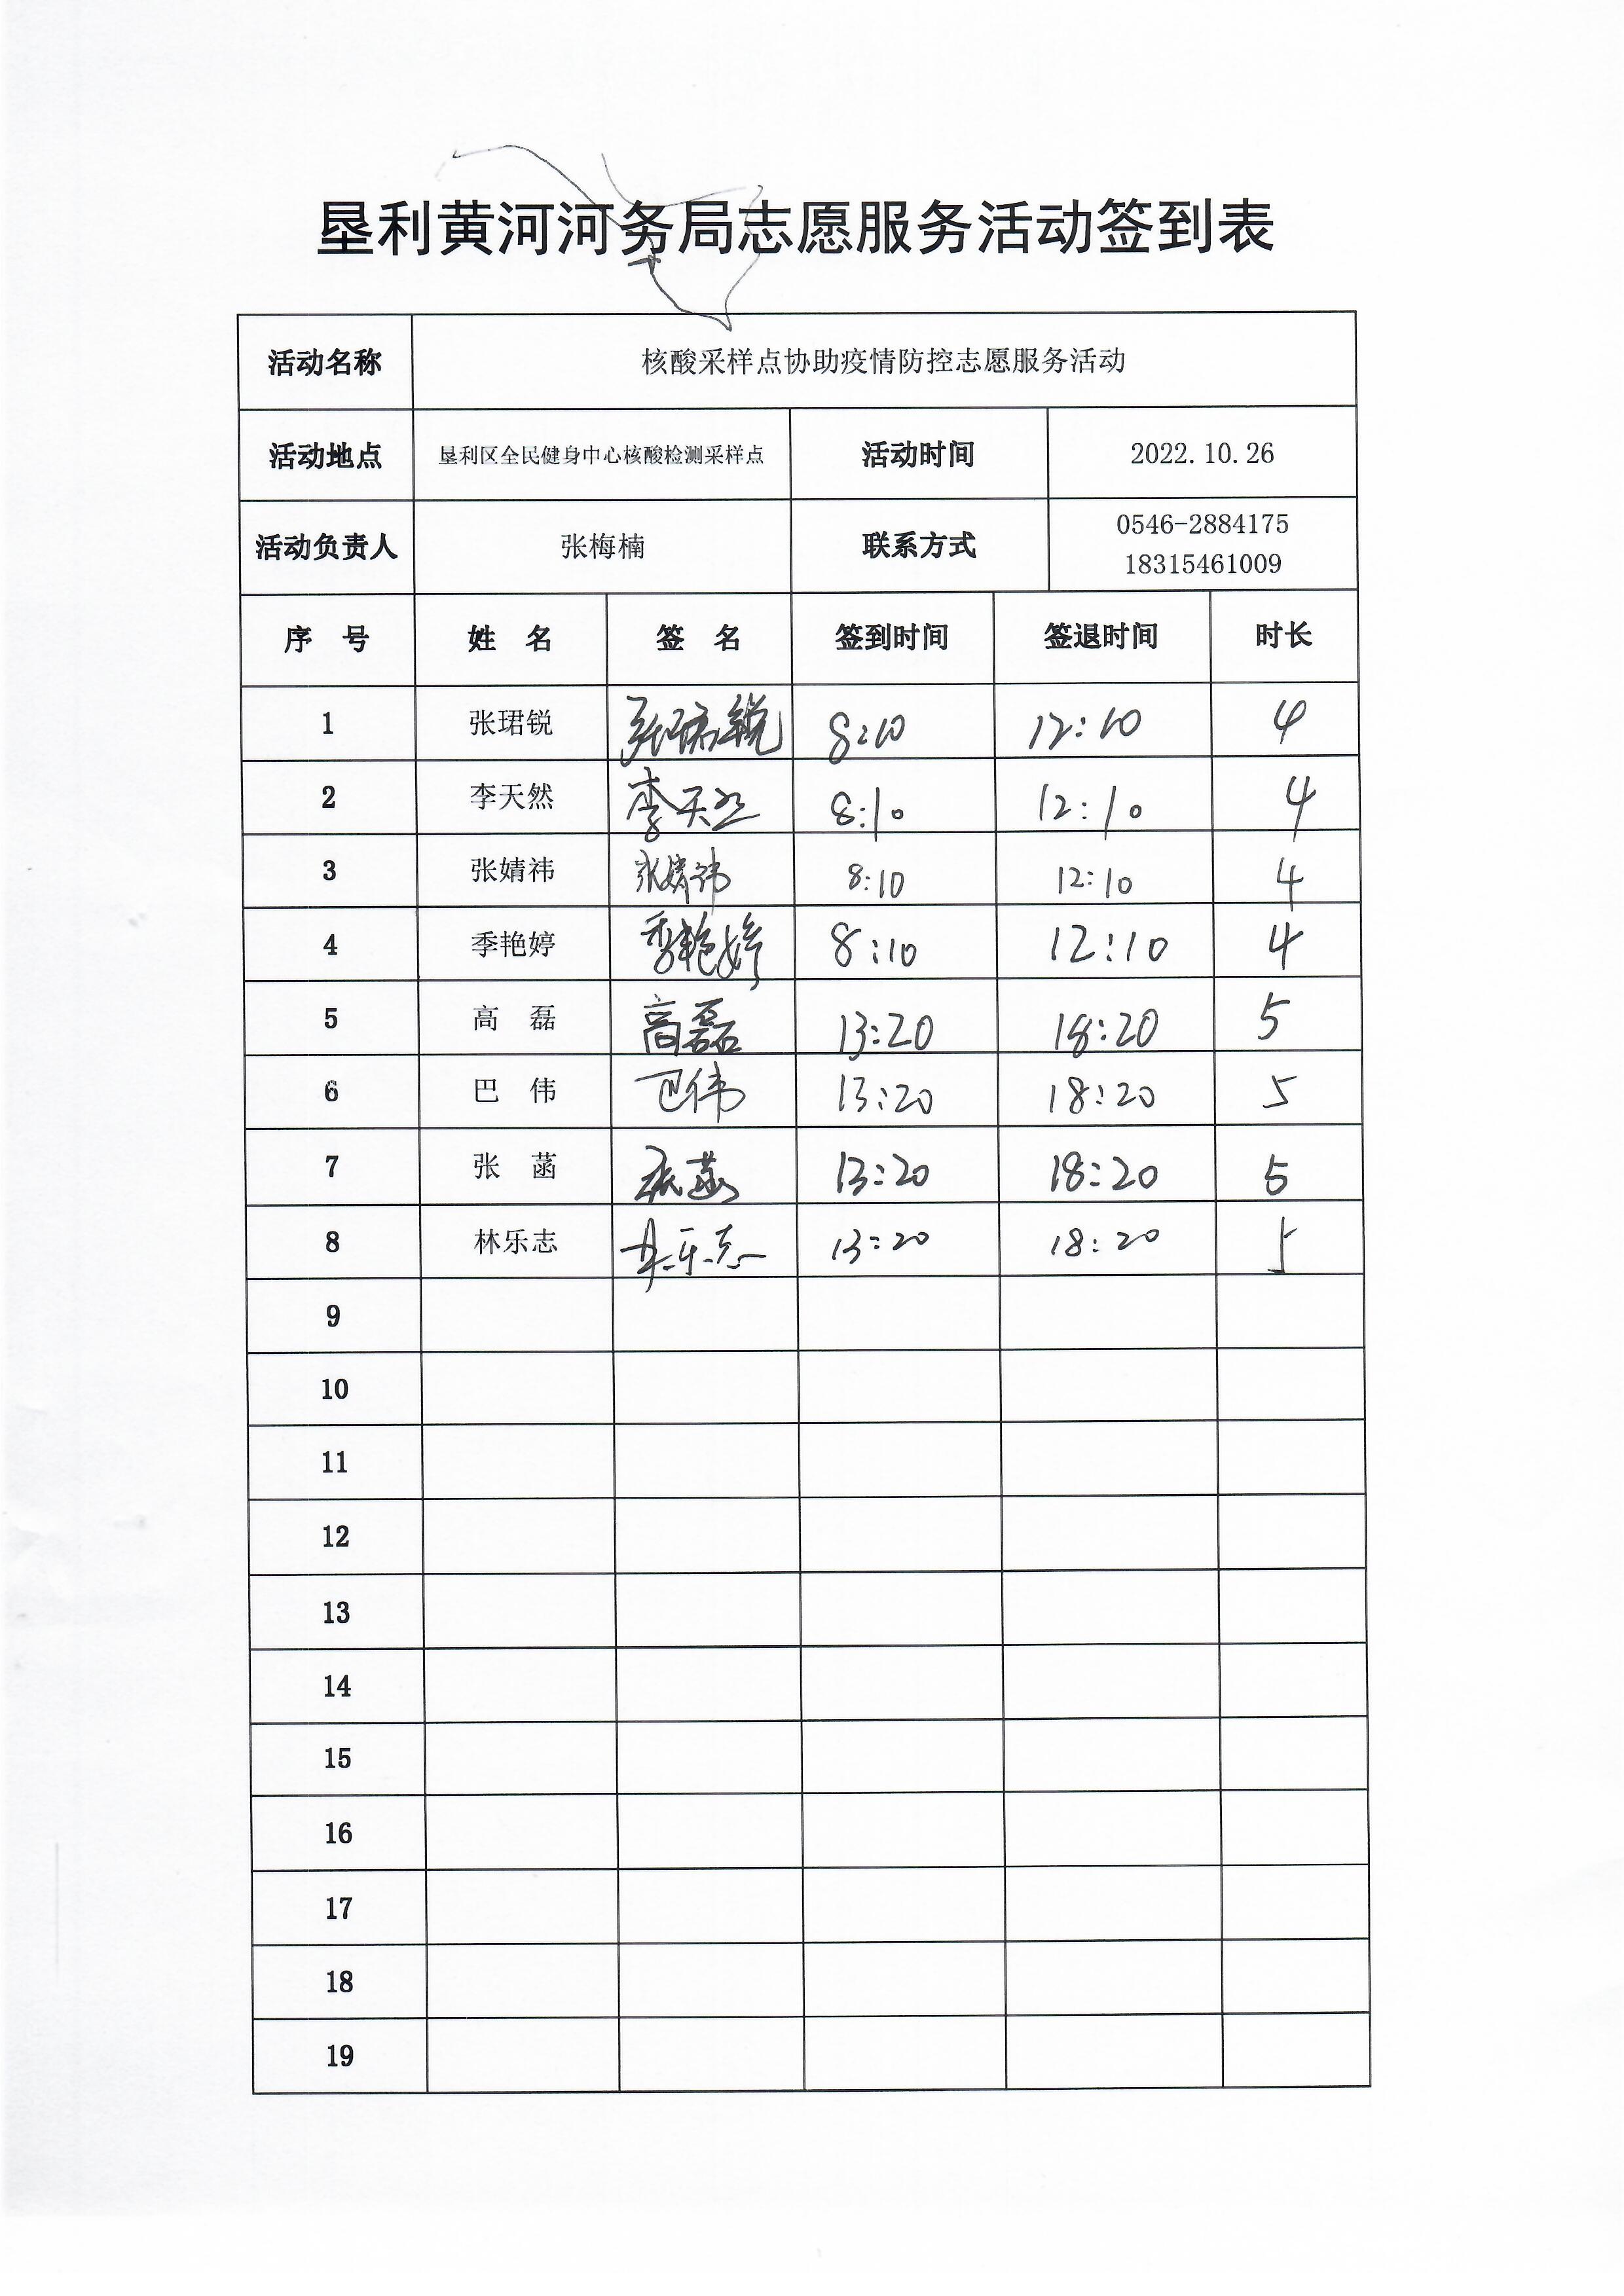 垦利黄河河务局志愿服务活动签到表
活动名称 核酸采样点协助疫情防控志愿服务活动
活动地点 垦利区全民健身中心核酸检测采样点 活动时间 2022.10.26
活动负责人 张梅楠 联系方式 0546-2884175
18315461009
序 号 姓 名 签 名 签到时间 签退时间 时长
1 张珺锐 张珺锐 8:10 12:10 4
2 李天然 李天然 8:10 12:10 4
3 张婧祎 张婧祎 8:10 12:10 4
4 季艳婷 季艳婷 8:10 12:10 4
5 高 磊 高磊 13:20 18:20 5
6 巴 伟 巴伟 13:20 18:20 5
7 张 菡 张菡 13:20 18:20 5
8 林乐志 林乐志 13:20 18:20 5
9
10
11
12
13
14
15
16
17
18
19